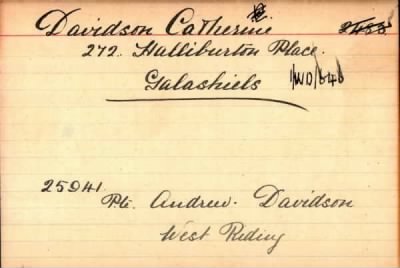 Davidson Catherine 2488
272. Halliburton Place.
Galashiels 1/WO/646
25941
Pte. Andrew. Davidson
West Riding